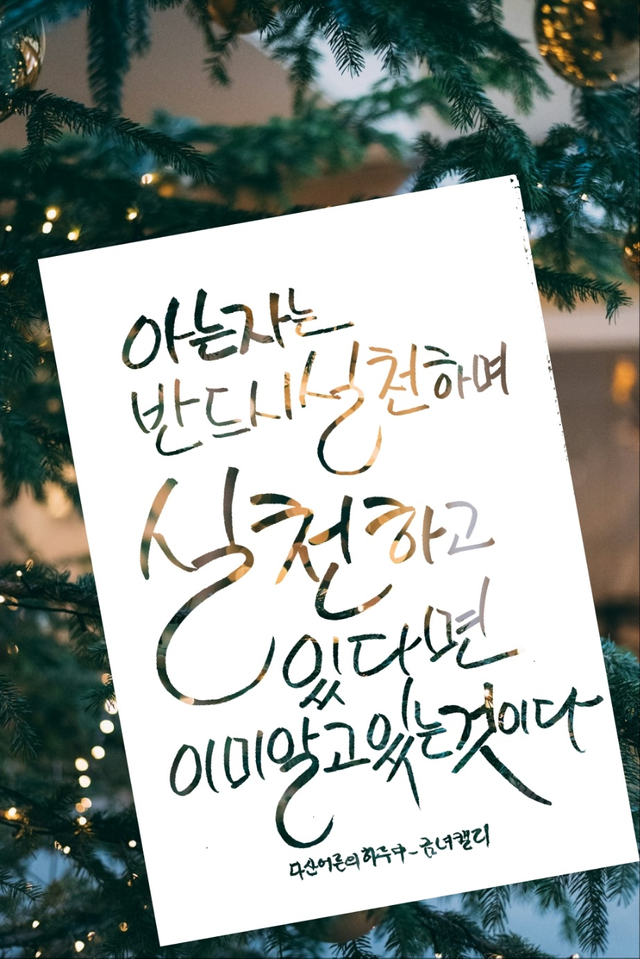 아는자는
반드시실천하며
실천하고
있다면
이미알고있는것이다
다산어른의하루中-금녀캘리